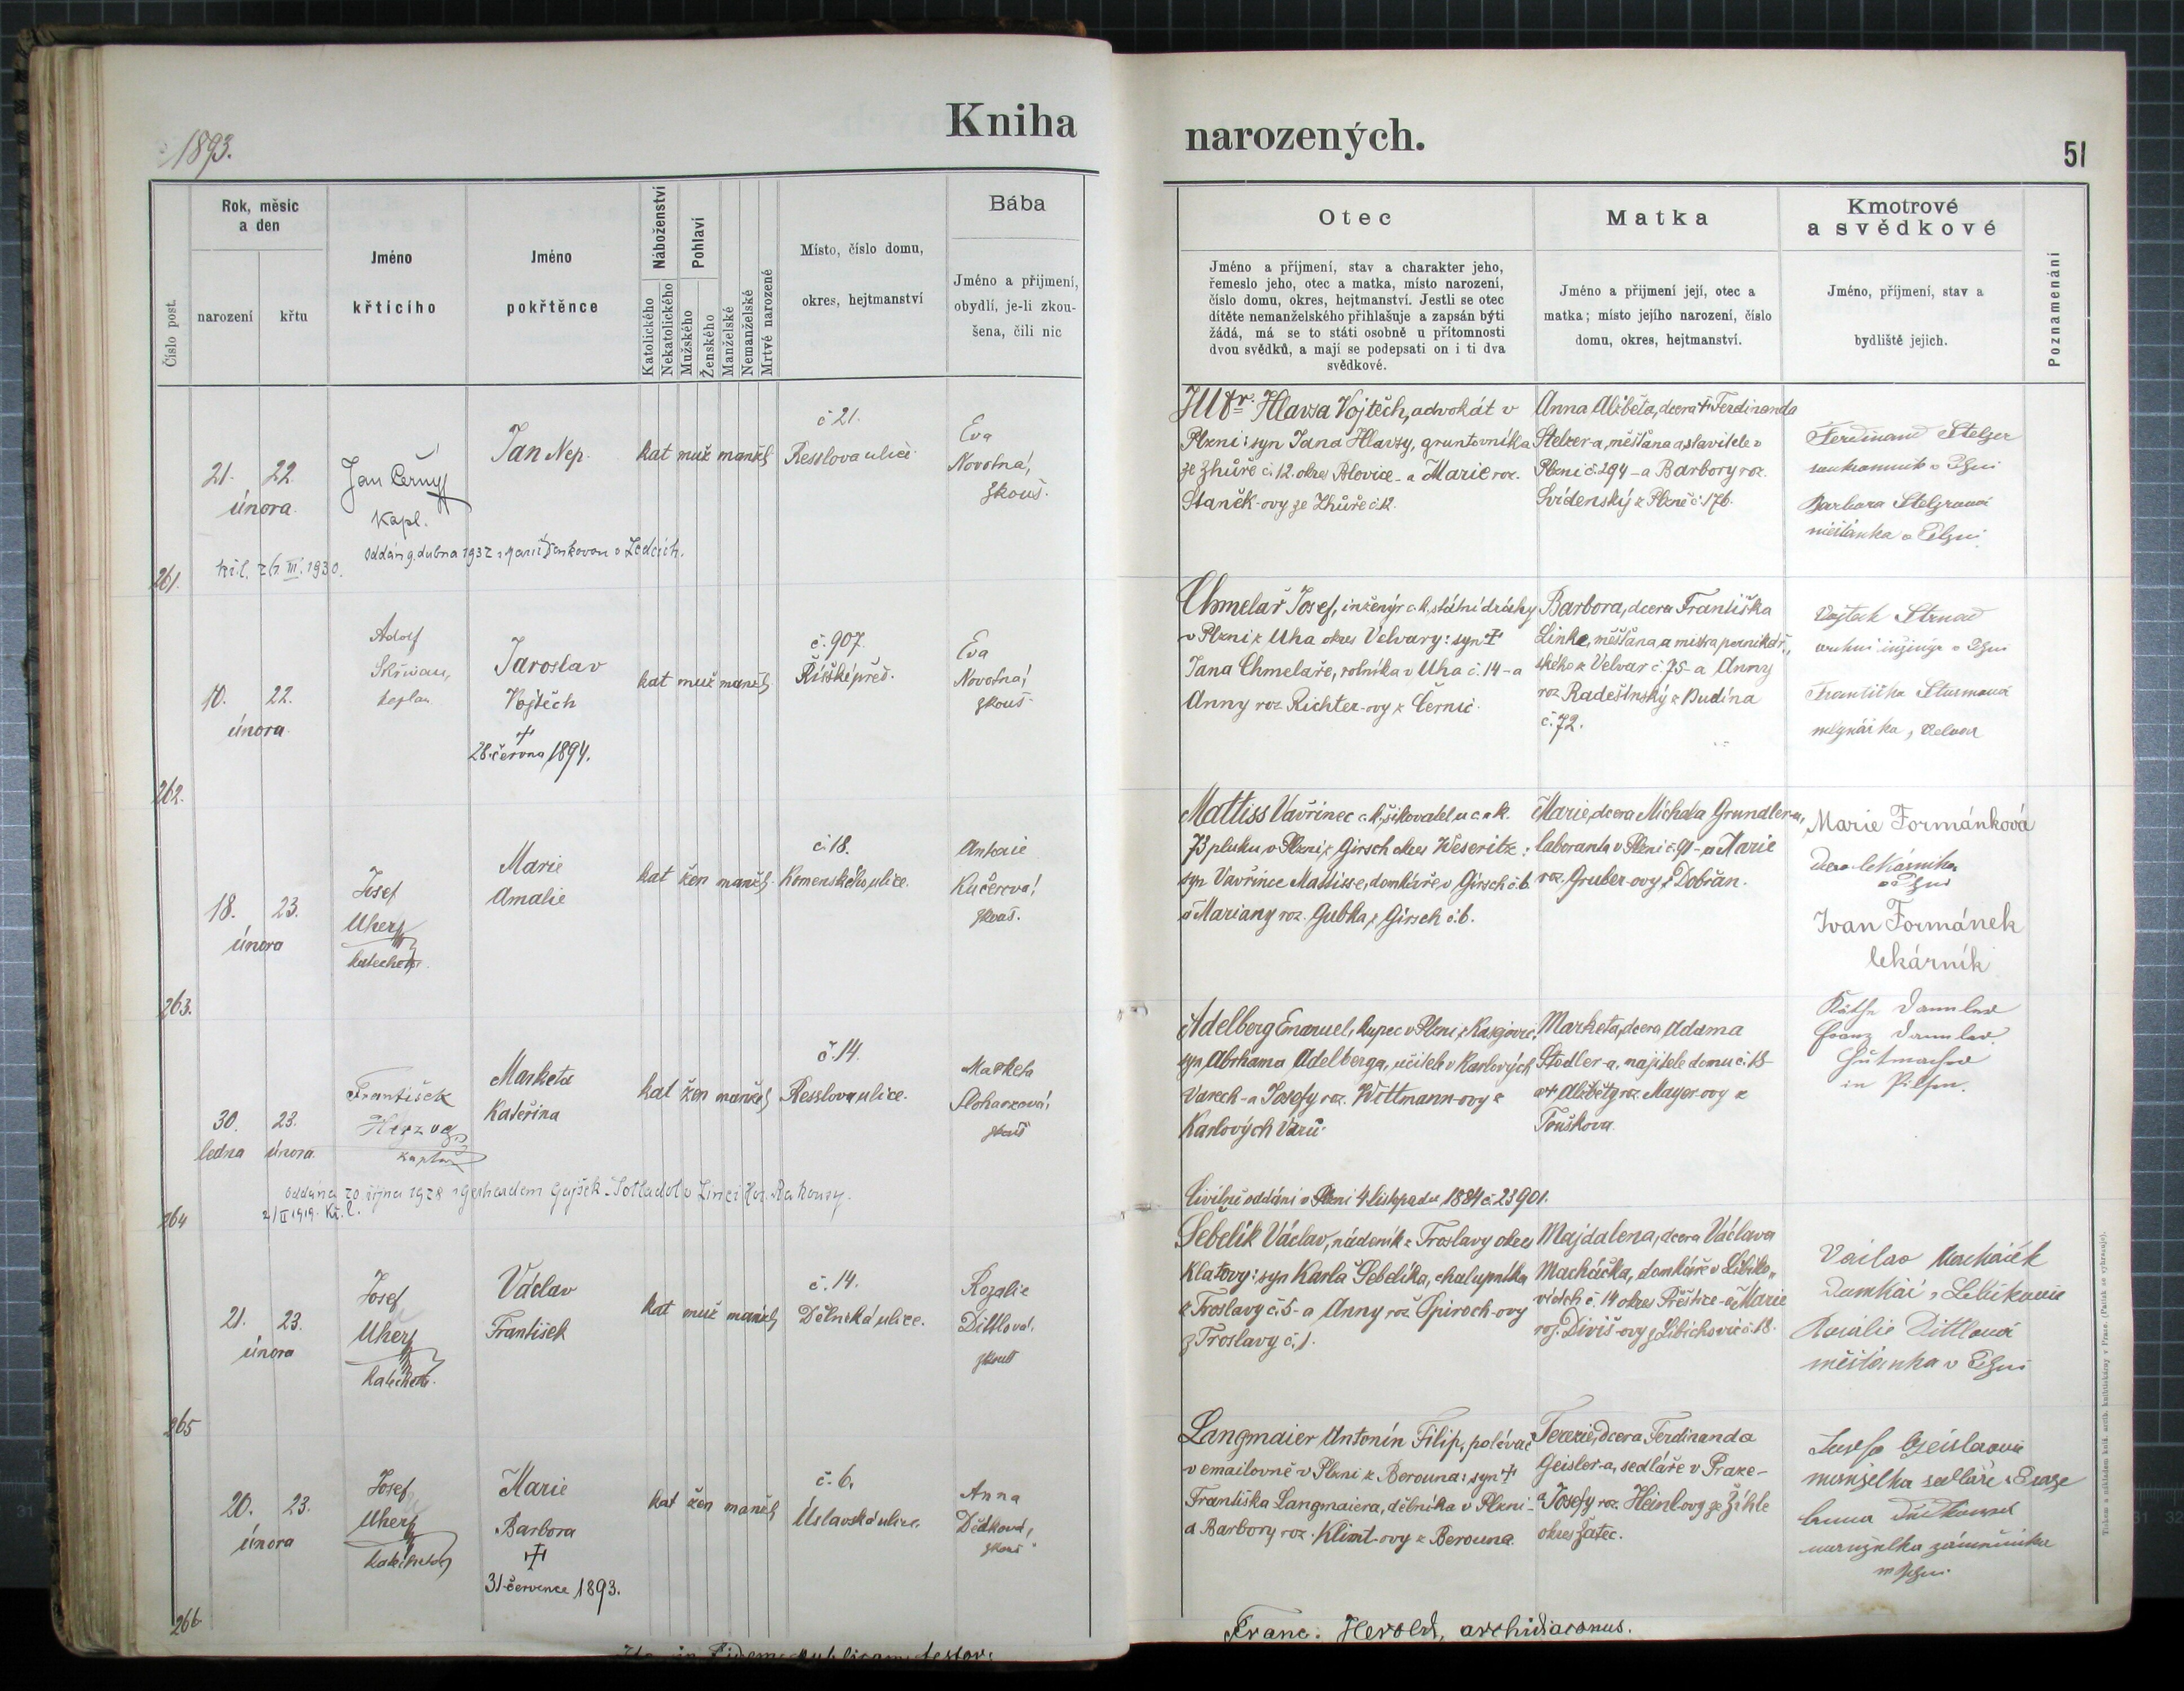 1893.
Kniha
narozených.
51
Číslo post.
Rok, měsíc
a den
narození
křtu
Jméno
křticího
Jméno
pokřtěnce
Náboženství
Katolického
Nekatolického
Pohlaví
Mužského
Ženského
Manželské
Nemanželské
Mrtvě narozené
Místo, číslo domu,
okres, hejtmanství
Bába
Jméno a příjmení,
obydlí, je-li zkou-
šena, čili nic
Otec
Jméno a příjmení, stav a charakter jeho,
řemeslo jeho, otec a matka, místo narození,
číslo domu, okres, hejtmanství. Jestli se otec
dítěte nemanželského přihlašuje a zapsán býti
žádá, má se to státi osobně u přítomnosti
dvou svědků, a mají se podepsati on i ti dva
svědkové.
Matka
Jméno a příjmení její, otec a
matka; místo jejího narození, číslo
domu, okres, hejtmanství.
Kmotrové
a svědkové
Jméno, příjmení, stav a
bydliště jejich.
Poznamenání
261.
21. 22.
února.
Jan Černý
kapl.
Jan Nep.
kat muž manžel
č 21.
Resslova ulice
Eva
Novotná,
zkouš.
křl. 26. III. 1930.
oddán 9. dubna 1932 v Ledcích.
JUDr. Hlavsa Vojtěch, advokát v
Plzni: syn Jana Hlavsy, gruntovníka
ze Zhůře č. 12. okres Blovice - a Marie roz.
Staněk-ovy ze Zhůře č. 12.
Anna Alžběta, dcera † Ferdinanda
Stelzer-a, měšťana a stavitele v
Plzni č. 294 - a Barbory roz.
Svídenský z Plzně č. 176.
Ferdinand Stelzer
v Plzni
Barbara Stelzrová
měšťanka v Plzni
262.
10. 22.
února.
Adolf
kaplan
Jaroslav
Vojtěch
†
28. června 1894.
kat muž manžel
č. 907.
Říšské před.
Eva
Novotná,
zkouš
Chmelař Josef, inženýr c. k. státní dráhy
v Plzni z Uha okres Velvary: syn †
Jana Chmelaře, rolníka v Uha č. 14 - a
Anny roz Richter-ovy z Černic
Barbora, dcera Františka
Linke, měšťana a mistra perníkář„
ského z Velvar č. 75 - a Anny
roz Radešínský z Budína
č. 72.
Vojtěch Strnad
vrchní inženýr v Plzni
Františka Šturmová
mlynářka, Velvar
263.
18. 23.
února
Josef
Uherr
katecheta.
Marie
Amalie
kat žen manžel
č. 18.
Komenského ulice.
Antonie
Kučerová,
zkouš.
Mattiss Vavřinec c. k. šikovatel u c. a k.
73 pluku v Plzni z Girsch okres Weseritz:
syn Vavřince Mattisse, domkáře v Girsch č. 6.
a Mariany roz. Gubka z Girsch č. 6.
Marie, dcera Michala Grundler-a,
laboranta v Plzni č. 91 - a Marie
roz. Gruber-ovy z Dobřan.
Marie Formánková
dcera lékárníka
v Plzni
Ivan Formánek
lekárník
264
30. 23.
ledna února.
František
Herzog
kaplan
Marketa
Kateřina
kat žen manžel
č. 14.
Resslova ulice.
Marketa
zkouš
oddána 20 října 1928 s Gerhardem v Linci Hor. Rakousy.
21/II 1919. Kř. l.
Adelberg Emanuel, kupec v Plzni z
syn Abrhama Adelberga, učitele v Karlových
Varech - a Josefy roz. Wittmann-ovy z
Karlových Varů.
Marketa, dcera Adama
Stadler-a, majitele domu č. 18
a † Alžběty roz. Mayer-ovy z
Touškova.
Civilně oddáni v Plzni 4 listopadu 1884 č. 23901.
in Pilsen.
265
21. 23.
února
Josef
Uherr
katecheta.
Václav
František
kat muž manžel
č. 14.
Dělnická ulice.
Rozalie
Dittlová,
zkouš
Šebelík Václav, nádeník z Troslavy okres
Klatovy: syn Karla Šebelíka, chalupníka
z Troslavy č. 5 - a Anny roz Spiroch-ovy
z Troslavy č. 1.
Majdalena, dcera Václava
Macháčka, domkáře v Libiko„
vicích č. 14 okres Přeštice - a Marie
roz. Diviš-ovy z Libichovic č. 18.
Václav Macháček
Domkář z Libikovic
Rosalie Dittlová
měšťanka v Plzni
266
20. 23.
února
Josef
Uherr
katecheta
Marie
Barbora
†
31. července 1893.
kat žen manžel
č. 6.
Úslavská ulice.
Anna
Dědková,
zkouš
Langmaier Antonín Filip, polévač
v emailovně v Plzni z Berouna: syn †
Františka Langmaiera, dělníka v Plzni -
a Barbory roz. Klimt-ovy z Berouna.
Terezie, dcera Ferdinanda
Geisler-a, sedláře v Praze -
a Josefy roz. Heinl-ovy ze Žihle
okres Žatec.
Josefa Geislerová
manželka sedláře v Praze
manželka zámečníka
v Plzni
Ita in fidem publicam testor:
Franc. Herold, archidiaconus.